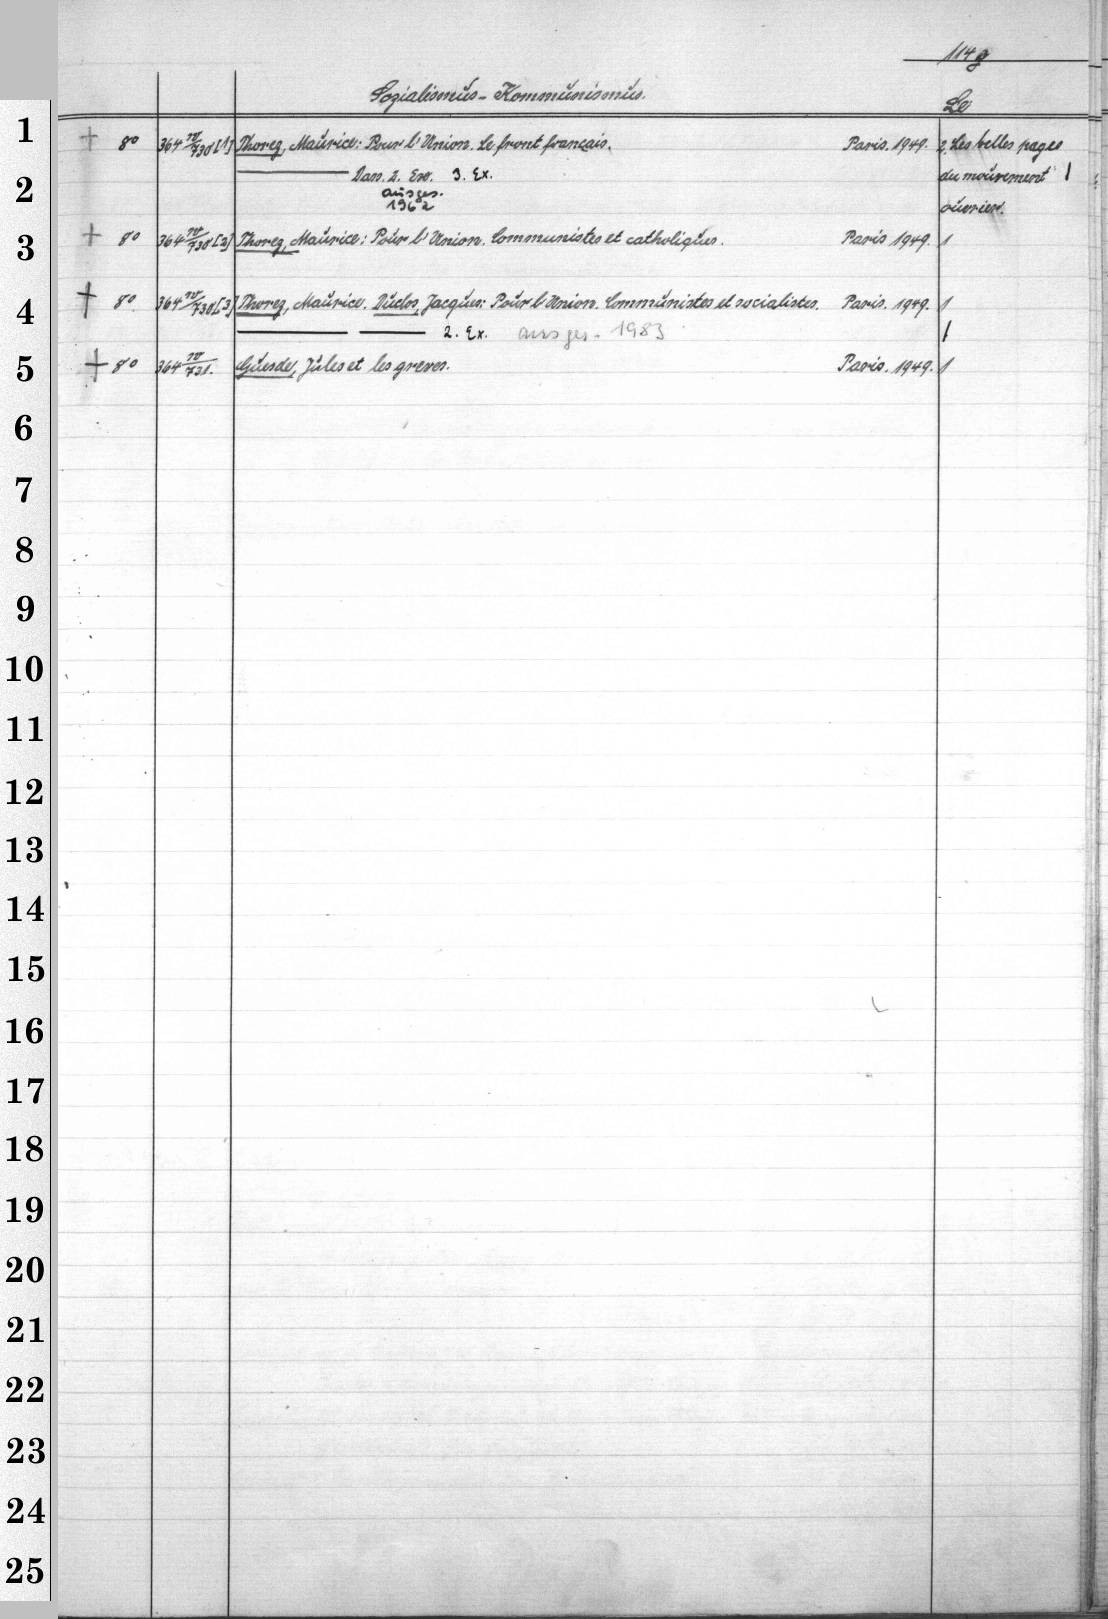 114g
Sozialismus - Kommunismus.
Le
1 + 8° 364 IV/730 [1] Thorez, Maurice: Pour l'Union. Le front français. Paris. 1949. 2. Les belles pages
2 Dass. 2. Ex. 3. Ex. du mouvement 1
ausges.
1962 ouvrier.
3 + 8° 364 IV/730 [2] Thorez, Maurice: Pour l'Union. Communistes et catholiques. Paris 1949. 1
4 + 8° 364 IV/730 [3] Thorez, Maurice. Duclos, Jacques: Pour l'Union. Communistes et socialistes. Paris. 1949. 1
2. Ex. ausges. 1983 1
5 + 8° 364 IV/731. Guesde, Jules et les greves. Paris. 1949. 1
6
7
8
9
10
11
12
13
14
15
16
17
18
19
20
21
22
23
24
25